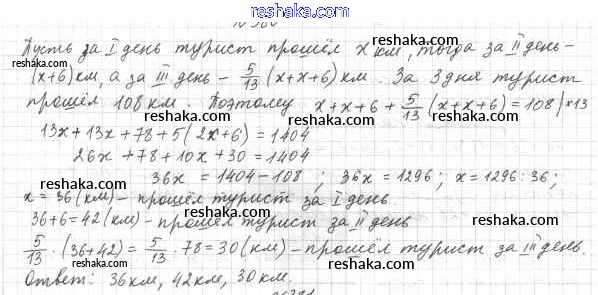 reshaka.com
Пусть за I день турист прошёл x км, тогда за II день –
(x+6) км, а за III день – 5/13 (x+x+6) км. За 3 дня турист
прошёл 108 км. Поэтому x+x+6+5/13(x+x+6)=108|×13
13x+13x+78+5(2x+6)=1404
26x+78+10x+30=1404
36x = 1404-108 ; 36x = 1296; x=1296:36;
x = 36 (км) – прошёл турист за I день
36+6=42 (км) – прошёл турист за II день
5/13 · (36+42) = 5/13 · 78=30 (км) – прошёл турист за III день.
Ответ: 36 км, 42 км, 30 км.
reshaka.com
reshaka.com
reshaka.com
reshaka.com
reshaka.com
reshaka.com
reshaka.com
reshaka.com
reshaka.com
reshaka.com